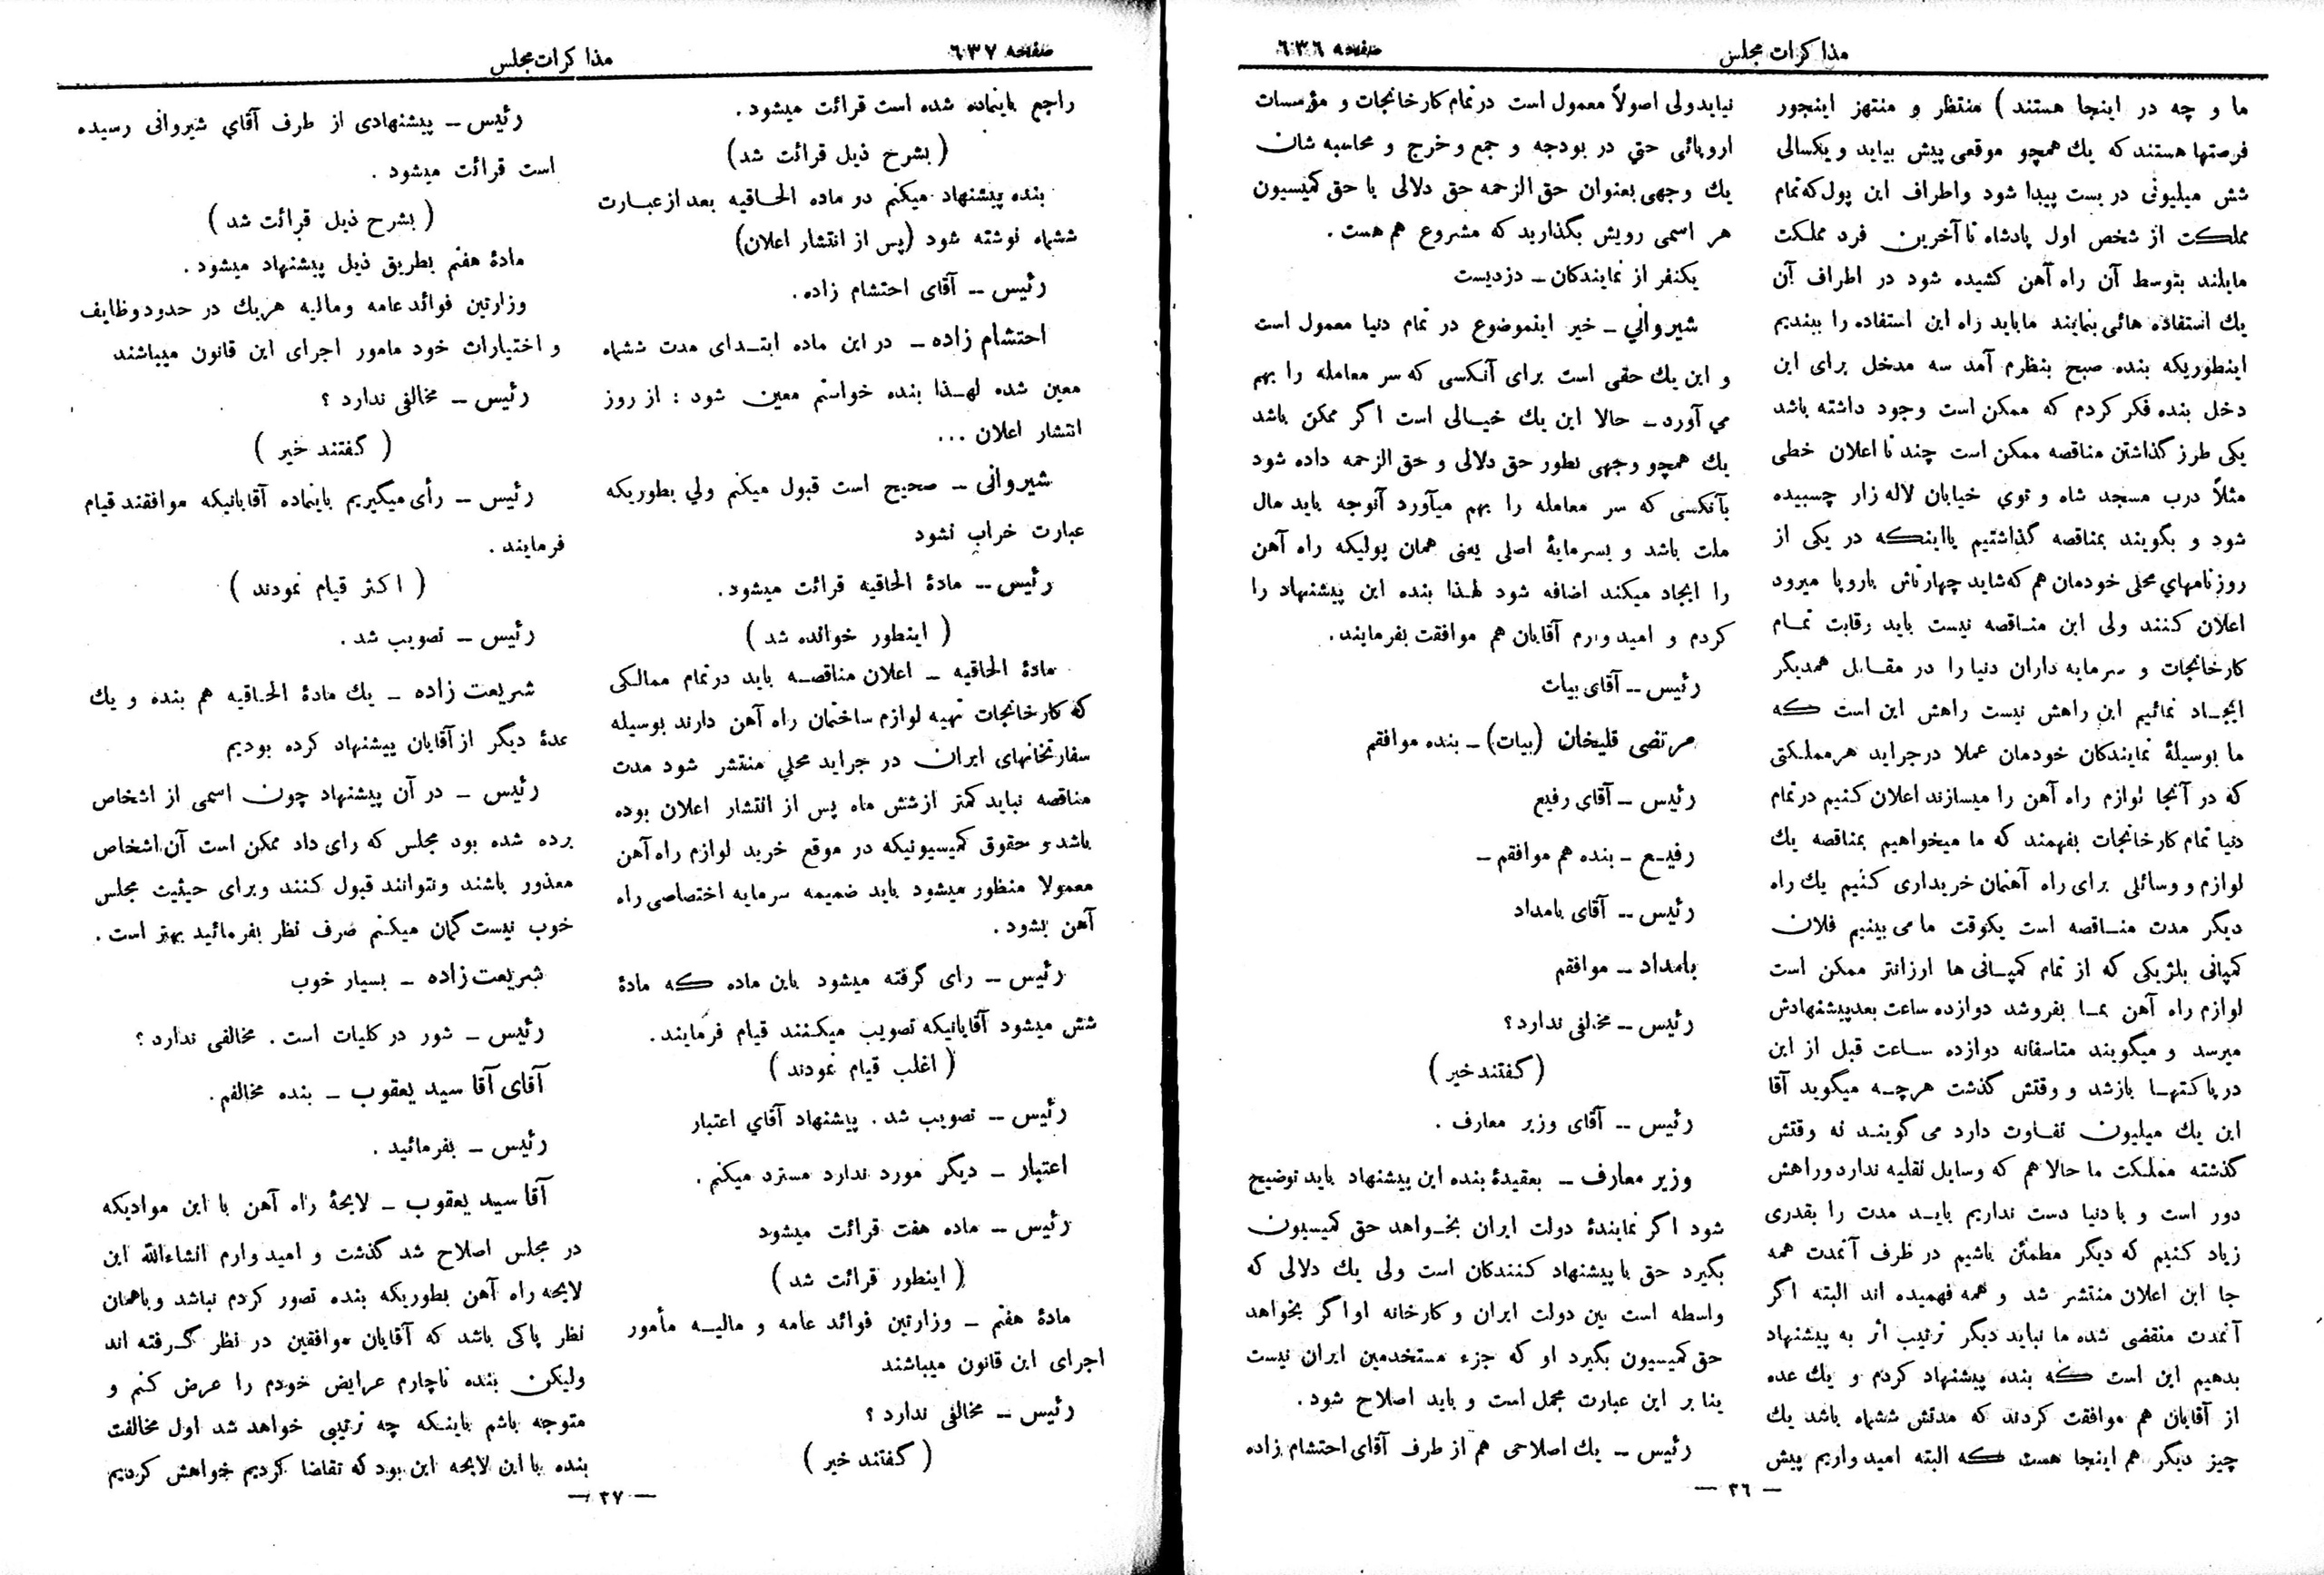 مذاکرات مجلس
صفحه ٦٣٦
ما و چه در اینجا هستند) منتظر و منتهز اینجور
فرصتها هستند که یك همچو موقعی پیش بیاید و یکسالی
شش میلیونی در بست پیدا شود واطراف این پول که تمام
مملکت از شخص اول پادشاه تا آخرین فرد مملکت
مایلند بتوسط آن راه آهن کشیده شود در اطراف آن
یك استفاده هائی بنمایند ماباید راه این استفاده را ببندیم
اینطوریکه بنده صبح بنظرم آمد سه مدخل برای این
دخل بنده فکر کردم که ممکن است وجود داشته باشد
یکی طرز گذاشتن مناقصه ممکن است چند تا اعلان خطی
مثلاً درب مسجد شاه و توي خیابان لاله زار چسبیده
شود و بگویند بمناقصه گذاشتیم یااینکه در یکی از
روزنامهاي محلی خودمان هم که شاید چهارتاش باروپا میرود
اعلان کنند ولی این مناقصه نیست باید رقابت تمام
کارخانجات و سرمایه داران دنیا را در مقابل همدیگر
ایجاد نمائیم این راهش نیست راهش این است که
ما بوسیلۀ نمایندکان خودمان عملا درجراید هرمملکتی
که در آنجا لوازم راه آهن را میسازند اعلان کنیم درتمام
دنیا تمام کارخانجات بفهمند که ما میخواهیم بمناقصه یك
لوازم و وسائلی برای راه آهنمان خریداری کنیم یك راه
دیگر مدت مناقصه است یکوقت ما می بینیم فلان
کمپانی بلژیکی که از تمام کمپانی ها ارزانتر ممکن است
لوازم راه آهن بما بفروشد دوازده ساعت بعدپیشنهادش
میرسد و میگویند متاسفانه دوازده ساعت قبل از این
درپاکتها بازشد و وقتش گذشت هرچه میگوید آقا
این یك میلیون تفاوت دارد می گویند نه وقتش
گذشته مملکت ما حالا هم که وسایل نقلیه ندارد وراهش
دور است و بادنیا دست نداریم باید مدت را بقدری
زیاد کنیم که دیگر مطمئن باشیم در ظرف آنمدت همه
جا این اعلان منتشر شد و همه فهمیده اند البته اگر
آنمدت منقضی شده ما نباید دیگر ترتیب اثر به پیشنهاد
بدهیم این است که بنده پیشنهاد کردم و یك عده
از آقایان هم موافقت کردند که مدتش ششماه باشد یك
چیز دیگر هم اینجا هست که البته امید واریم پیش
نیاید ولی اصولاً معمول است درتمام کارخانجات و مؤسسات
اروپائی حتي در بودجه و جمع وخرج و محاسبه شان
یك وجهی بعنوان حق الزحمه حق دلالی یا حق کمیسیون
هر اسمی رویش بگذارید که مشروع هم هست .
یکنفر از نمایندکان ــ دزدیست
شیرواني ــ خیر اینموضوع در تمام دنیا معمول است
و این یك حقی است برای آنکسی که سر معامله را بهم
مي آورد ــ حالا این یك خیالی است اگر ممکن باشد
یك همچو وجهی بطور حق دلالی و حق الزحمه داده شود
بآنکسی که سر معامله را بهم میآورد آنوجه باید مال
ملت باشد و بسرمایۀ اصلی یعنی همان پولیکه راه آهن
را ایجاد میکند اضافه شود لهذا بنده این پیشنهاد را
کردم و امید وارم آقایان هم موافقت بفرمایند.
رئیس ــ آقای بیات
مرتضی قلیخان (بیات) ــ بنده موافقم
رئیس ــ آقای رفیع
رفیع ــ بنده هم موافقم ــ
رئیس ــ آقای بامداد
بامداد ــ موافقم
رئیس ــ مخلفی ندارد؟
(گفتند خیر)
رئیس ــ آقای وزیر معارف .
وزیر معارف ــ بعقیدۀ بنده این پیشنهاد باید توضیح
شود اگر نمایندۀ دولت ایران بخواهد حق کمیسیون
بگیرد حق با پیشنهاد کنندکان است ولی یك دلالی که
واسطه است بین دولت ایران و کارخانه اواگر بخواهد
حق کمیسیون بگیرد او که جزء مستخدمین ایران نیست
بنا بر این عبارت مجمل است و باید اصلاح شود .
رئیس ــ یك اصلاحی هم از طرف آقای احتشام زاده
— ٣٦ —
صفحه ٦٣٧
مذاکرات مجلس
راجع باینماده شده است قرائت میشود.
(بشرح ذیل قرائت شد)
بنده پیشنهاد میکنم در ماده الحاقیه بعد از عبارت
ششماه نوشته شود (پس از انتشار اعلان)
رئیس ــ آقای احتشام زاده.
احتشام زاده ــ در این ماده ابتدای مدت ششماه
معین شده لهذا بنده خواستم معین شود : از روز
انتشار اعلان ...
شیروانی ــ صحیح است قبول میکنم ولي بطوریکه
عبارت خراب نشود
رئیس ــ مادۀ الحاقیه قرائت میشود.
(اینطور خوانده شد)
مادۀ الحاقیه ــ اعلان مناقصه باید درتمام ممالکی
که کارخانجات تهیه لوازم ساختمان راه آهن دارند بوسیله
سفارتخانهای ایران در جراید محلي منتشر شود مدت
مناقصه نباید کمتر ازشش ماه پس از انتشار اعلان بوده
باشد و حقوق کمیسیونیکه در موقع خرید لوازم راه آهن
معمولا منظور میشود باید ضمیمه سرمایه اختصاصی راه
آهن بشود.
رئیس ــ رای گرفته میشود باین ماده که مادۀ
شش میشود آقایانیکه تصویب میکنند قیام فرمایند.
(اغلب قیام نمودند)
رئیس ــ تصویب شد. پیشنهاد آقاي اعتبار
اعتبار ــ دیگر مورد ندارد مسترد میکنم .
رئیس ــ ماده هفت قرائت میشود
(اینطور قرائت شد)
مادۀ هفتم ــ وزارتین فوائد عامه و مالیه مأمور
اجرای این قانون میباشند
رئیس ــ مخالفی ندارد ؟
(گفتند خیر)
رئیس ــ پیشنهادی از طرف آقاي شیروانی رسیده
است قرائت میشود .
(بشرح ذیل قرائت شد)
مادۀ هفتم بطریق ذیل پیشنهاد میشود .
وزارتین فوائد عامه ومالیه هریك در حدود وظایف
و اختیارات خود مامور اجرای این قانون میباشند
رئیس ــ مخالفی ندارد ؟
(گفتند خیر)
رئیس ــ رأی میگیریم باینماده آقایانیکه موافقند قیام
فرمایند.
(اکثر قیام نمودند)
رئیس ــ تصویب شد.
شریعت زاده ــ یك مادۀ الحاقیه هم بنده و یك
عدۀ دیگر از آقایان پیشنهاد کرده بودیم
رئیس ــ در آن پیشنهاد چون اسمی از اشخاص
برده شده بود مجلس که رای داد ممکن است آن اشخاص
معذور باشند ونتوانند قبول کنند وبرای حیثیت مجلس
خوب نیست گمان میکنم صرف نظر بفرمائید بهتر است.
شریعت زاده ــ بسیار خوب
رئیس ــ شور در کلیات است. مخالفی ندارد ؟
آقای آقا سید یعقوب ــ بنده مخالفم.
رئیس ــ بفرمائید .
آقا سید یعقوب ــ لایحۀ راه آهن با این موادیکه
در مجلس اصلاح شد گذشت و امید وارم انشاءالله این
لایحه راه آهن بطوریکه بنده تصور کردم نباشد وباهمان
نظر پاکی باشد که آقایان موافقین در نظر گرفته اند
ولیکن بنده ناچارم عرایض خودم را عرض کنم و
متوجه باشم باینکه چه ترتیبی خواهد شد اول مخالفت
بنده با این لایحه این بود که تقاضا کردیم خواهش کردیم
— ٣٧ —